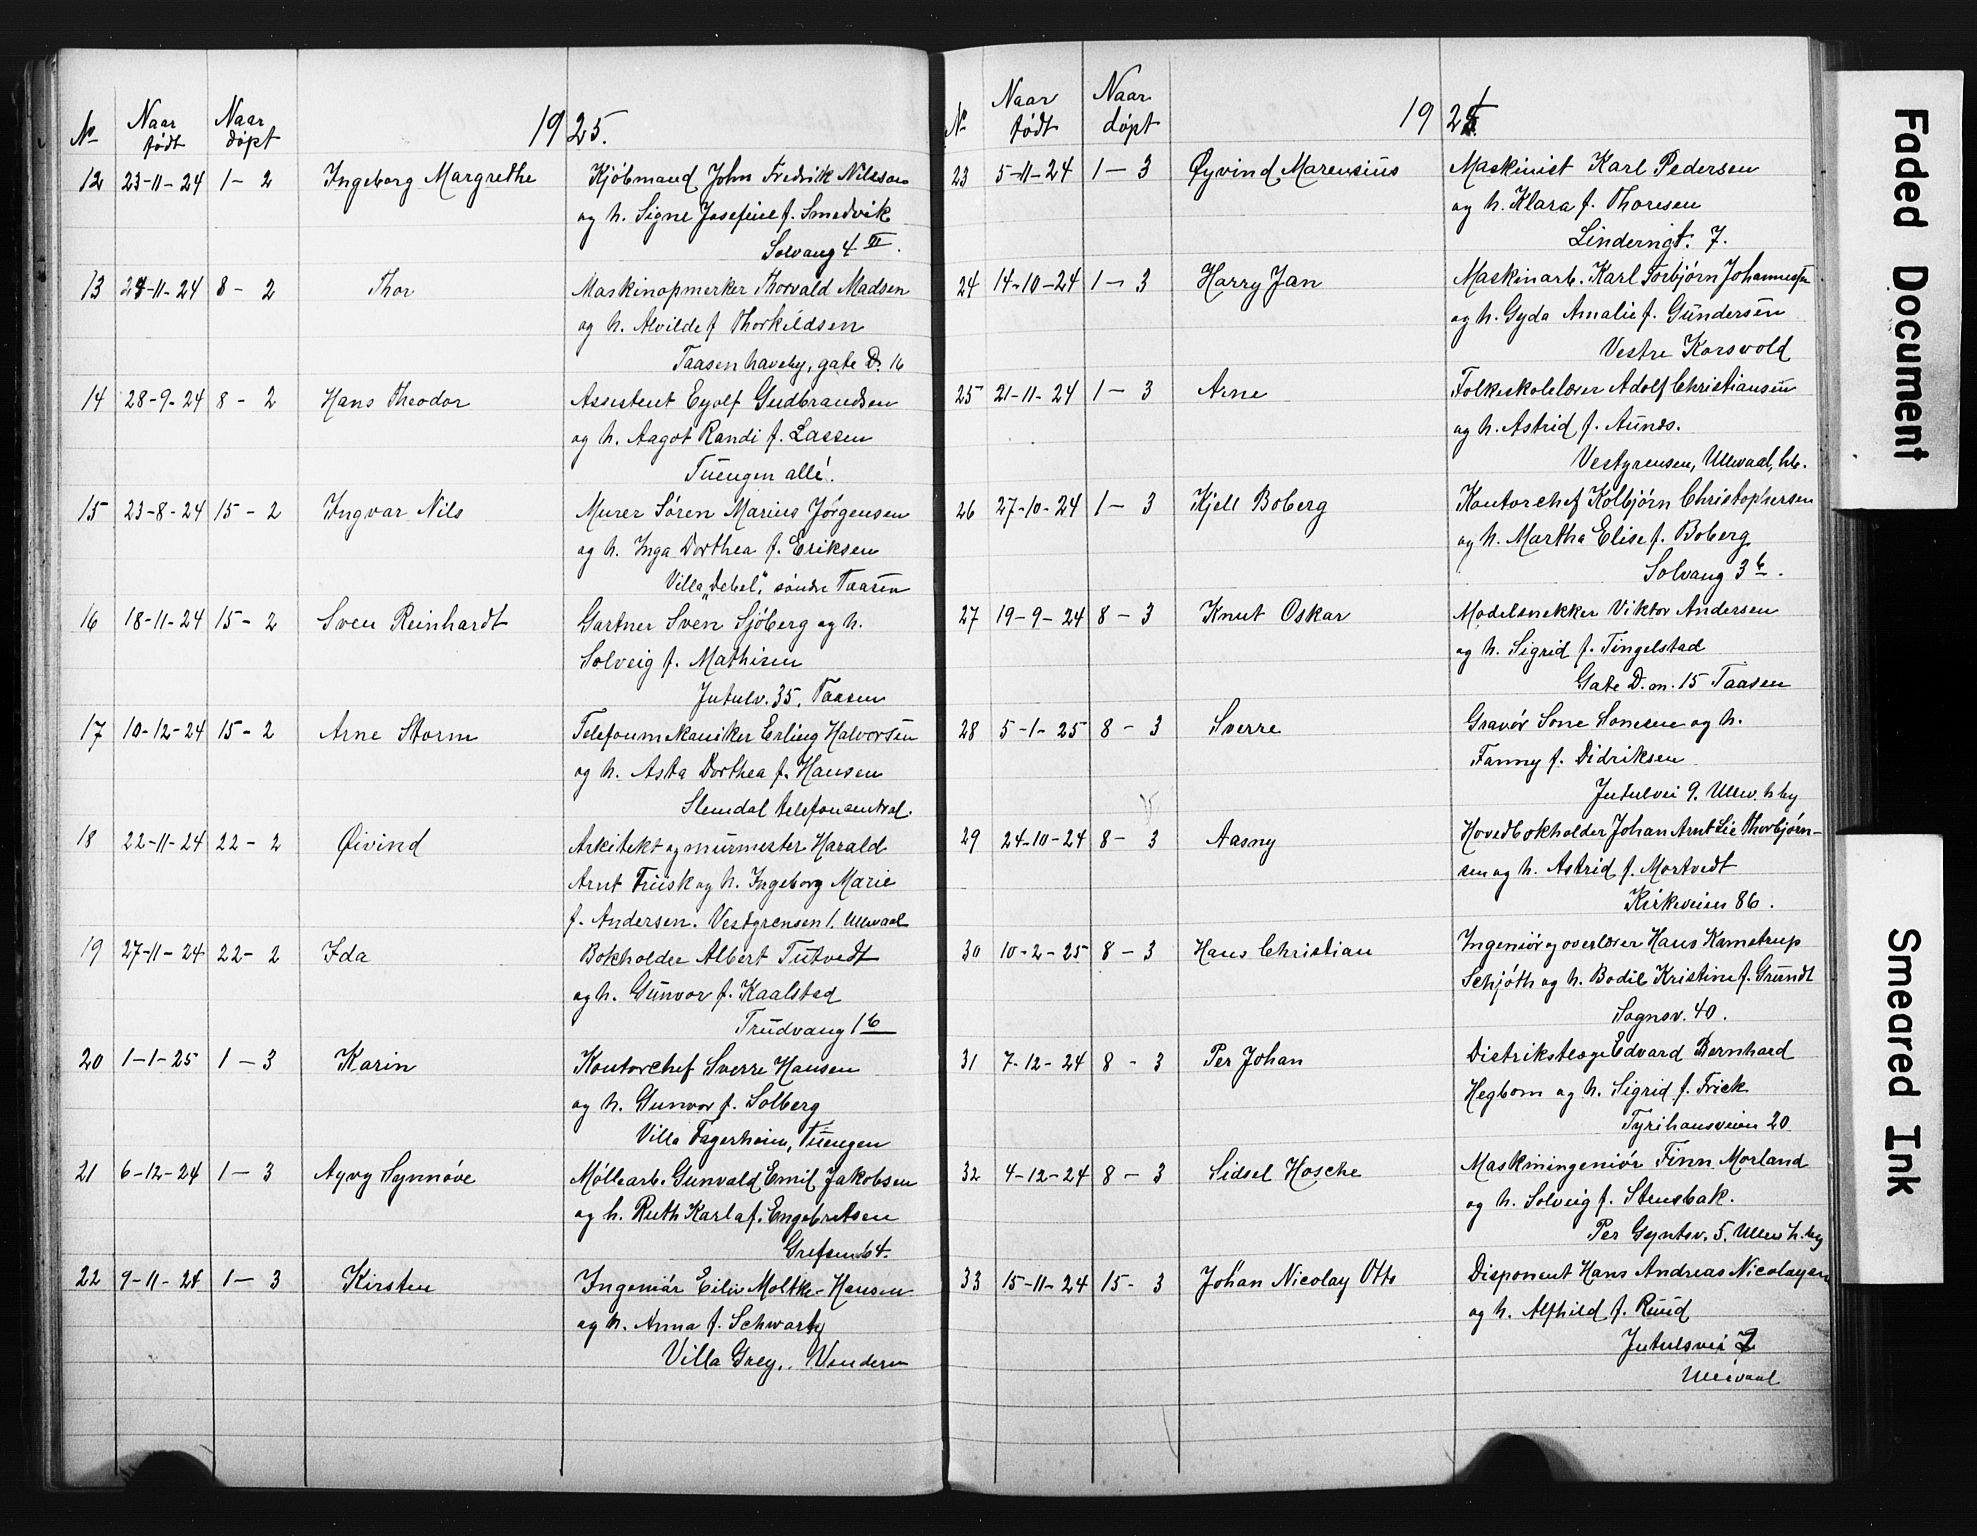 No Naar født Naar døpt 1925.
12 23-11-24 1-2 Ingeborg Margrethe Kjøbmand John Fredrik Nilsson
og h. Signe Josefine f. Smedvik
Solvang 4 III.
13 24-11-24 8-2 Thor Maskinopmerker Thorvald Madsen
og h. Alvilde f Thorkildsen
Taasen haveby, gate D. 16
14 28-9-24 8-2 Hans Theodor Assistent Eyolf Gudbrandsen
og h. Aagot Randi f. Lassen
Tuengen allé.
15 23-8-24 15-2 Ingvar Nils Murer Søren Marius Jørgensen
og h. Inga Dorthea f. Eriksen
Villa søndre Taasen
16 18-11-24 15-2 Sven Reinhardt Gartner Sven Sjøberg og h.
Solveig f. Mathisen
Jutulv. 35. Taasen
17 10-12-24 15-2 Arne Storm Telefonmekaniker Erling Halvorsen
og h. Asta Dorthea f. Hansen
Slemdal telefoncentral.
18 22-11-24 22-2 Øivind Arkitekt og murmester Harald
Arnt Friis og h. Ingeborg Marie
f. Andersen. Vestgrensen 1. Ullevaal
19 27-11-24 22-2 Ida Bokholder Albert Tutvedt
og h. Gunvor f. Kaalstad
Trudvang 1 b
20 1-1-25 1-3 Karin Kontorchef Sverre Hansen
og h. Gunvor f. Solberg
Villa Fagerheim, Tuengen
21 6-12-24 1-3 Synnøve Møllearb. Gunvald Emil Jakobsen
og h. Ruth Karla f. Engebretsen
Grefsen 64.
22 9-11-24 1-3 Kirsten Ingeniør Eiliv Moltke-Hansen
og h. Anna f. Schwartz
Villa Grey, Vinderen
No Naar født Naar døpt 1925
23 5-11-24 1-3 Øyvind Marensius Maskinist Karl Pedersen
og h. Klara f. Thoresen
Linderngt. 7.
24 14-10-24 1-3 Harry Jan Maskinarb. Karl Torbjørn Johannessen
og h. Gyda Amalie f. Gundersen
Vestre Korsvold
25 21-11-24 1-3 Arne Folkeskolelærer Adolf Christiansen
og h. Astrid f. Aunes.
Vestgrensen, Ullevaal, hb.
26 27-10-24 1-3 Kjell Boberg Kontorchef Kolbjørn Christophersen
og h. Martha Elise f. Boberg
Solvang 3 b.
27 19-9-24 8-3 Knut Oskar Modelsnekker Viktor Andersen
og h. Sigrid f. Tingelstad
Gate D. m. 15 Taasen
28 5-1-25 8-3 Sverre Gravør Sone Sonesen og h.
Fanny f. Didriksen
Jutulvei 9. Ullev. h by
29 24-10-24 8-3 Aasny Hovedbokholder Johan Arnt Lie Thorbjørn-
sen og h. Astrid f. Mortvedt
Kirkeveien 86.
30 10-2-25 8-3 Hans Christian Ingeniør og overlærer Hans Kamstrup
Schjøth og h. Bodil Kristine f. Grundt
Sognsv. 40.
31 7-12-24 8-3 Per Johan Distriktslæge Edvard Bernhard
Hegbom og h. Sigrid f. Frick
Tyrihansveien 20
32 4-12-24 8-3 Sidsel Hosche Maskiningeniør Finn Morland
og h. Solveig f. Stensbak.
Per Gyntsv. 5. Ullev h. by
33 15-11-24 15-3 Johan Nicolay Otto Disponent Hans Andreas Nicolaysen
og h. Alfhild f. Ruud
Jutulsvei 2
Ullevaal
Faded Document
Smeared Ink